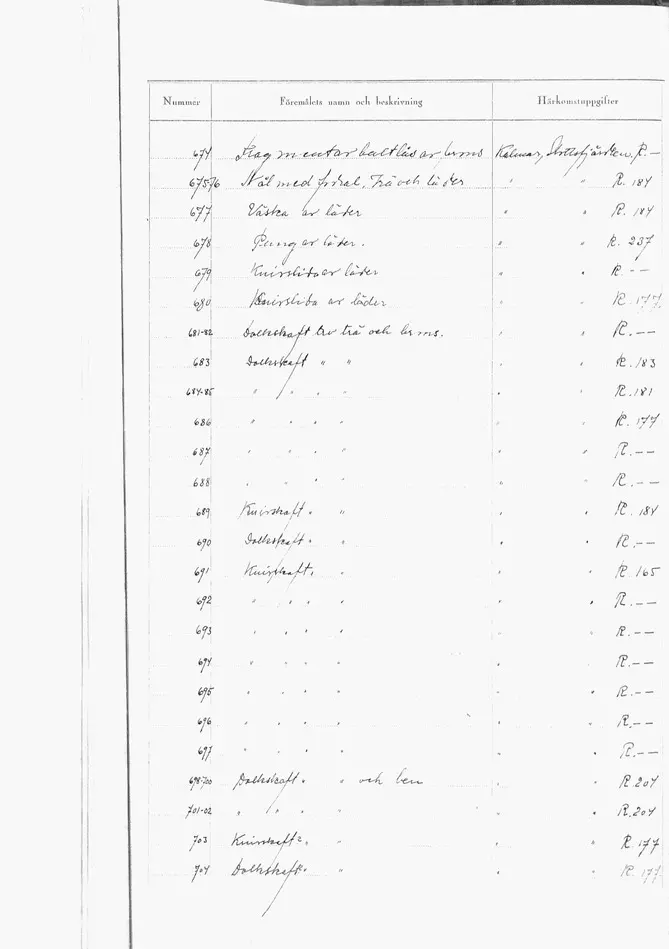 Nummer Föremålets namn och beskrivning Härkomstuppgifter
674 Fragment av bältlås av brons Kalmar, Slottsfjärden, R. —
675-76 Nål med fodral, Trä och läder " " R. 184
677 Väska av läder " " R. 184
678 Pung av läder. " " R. 237
679 Knivslida av läder " " R. - -
680 Knivslida av läder " " R. 177
681-82 Dolkskaft av trä och brons. " " R. — —
683 Dolkskaft " " " " R. 183
684-85 " " " " " " R. 181
686 " " " " " " R. 177
687 " " " " " " R. — —
688 " " " " " " R. — —
689 Knivskaft " " " " R. 184
690 Dolkskaft " " " " R. — —
691 Knivskaft " " " " R. 165
692 " " " " " " R. — —
693 " " " " " " R. — —
694 " " " " " " R. — —
695 " " " " " " R. — —
696 " " " " " " R. — —
697 " " " " " " R. — —
698-700 Dolkskaft " " och ben " " R. 204
701-02 " " " " " " R. 204
703 Knivskaft " " " " R. 177
704 Dolkskaft " " " " R. 177